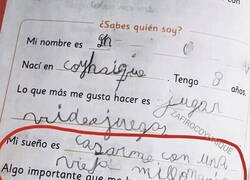 ¿Sabes quién soy?
Mi nombre es
Nací en coyhaique. Tengo 8 años.
Lo que más me gusta hacer es jugar
videojuegos.
Mi sueño es casarme con una
vieja millonaria
Algo importante que